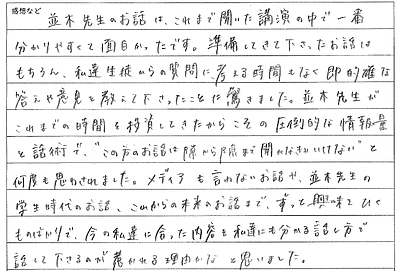 感想など
並木先生のお話は、これまで聞いた講演の中で一番
分かりやすくて面白かったです。準備してきて下さったお話は
もちろん、私達生徒からの質問に考える時間もなく即的確な
答えや意見を教えて下さったことに驚きました。並木先生が
これまでの時間を投資してきたからこその圧倒的な情報量
と話術で、"この方のお話は隅から隅まで聞かなきゃいけない"と
何度も思わされました。メディアも言わないお話や、並木先生の
学生時代のお話、これからの未来のお話まで、ずっと興味をひく
ものばかりで、今の私達に合った内容を私達にも分かる話し方で
話して下さるのが惹かれる理由かなと思いました。